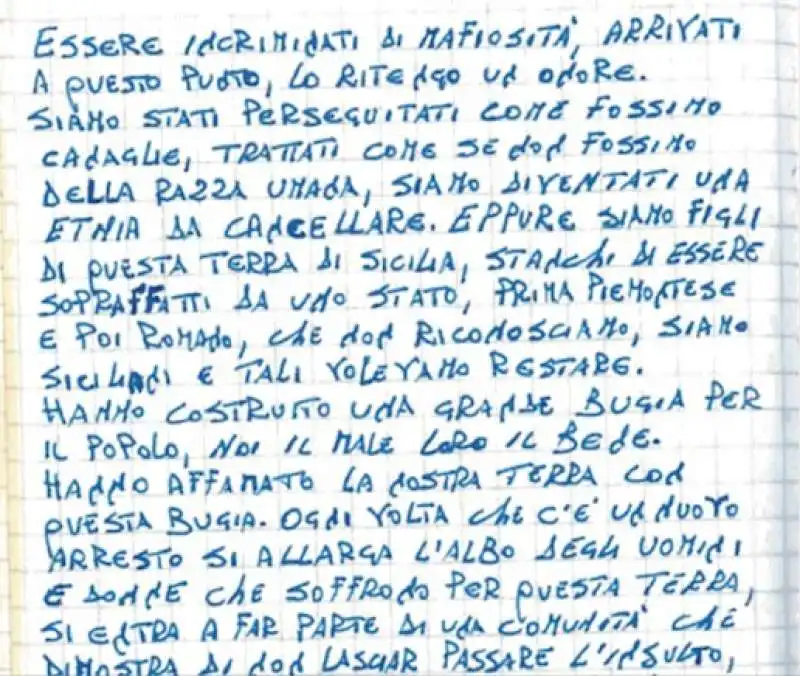 ESSERE INCRIMINATI DI MAFIOSITÀ, ARRIVATI
A QUESTO PUNTO, LO RITENGO UN ONORE.
SIAMO STATI PERSEGUITATI COME FOSSIMO
CANAGLIE, TRATTATI COME SE NON FOSSIMO
DELLA RAZZA UMANA, SIAMO DIVENTATI UNA
ETNIA DA CANCELLARE. EPPURE SIAMO FIGLI
DI QUESTA TERRA DI SICILIA, STANCHI DI ESSERE
SOPRAFFATTI DA UNO STATO, PRIMA PIEMONTESE
E POI ROMANO, CHE NON RICONOSCIAMO, SIAMO
SICILIANI E TALI VOLEVAMO RESTARE.
HANNO COSTRUITO UNA GRANDE BUGIA PER
IL POPOLO, NOI IL MALE LORO IL BENE.
HANNO AFFAMATO LA NOSTRA TERRA CON
QUESTA BUGIA. OGNI VOLTA CHE C'E' UN NUOVO
ARRESTO SI ALLARGA L'ALBO DEGLI UOMINI
E DONNE CHE SOFFRONO PER QUESTA TERRA,
SI ENTRA A FAR PARTE DI UNA COMUNITÀ CHE
DIMOSTRA DI NON LASCIAR PASSARE L'INSULTO,